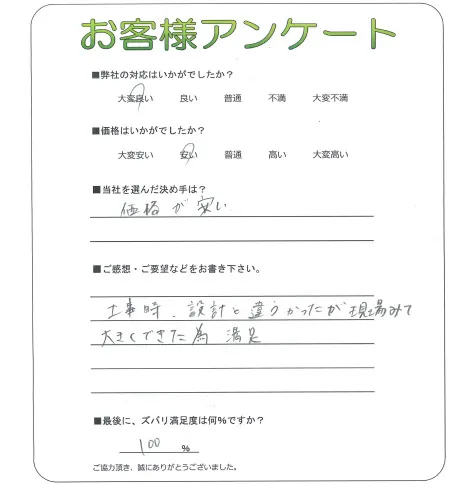 お客様アンケート
■弊社の対応はいかがでしたか？
大変良い 良い 普通 不満 大変不満
■価格はいかがでしたか？
大変安い 安い 普通 高い 大変高い
■当社を選んだ決め手は？
価格が安い
■ご感想・ご要望などをお書き下さい。
工事時、設計と違うかったが現場みて
大きくできた為 満足
■最後に、ズバリ満足度は何%ですか？
100 %
ご協力頂き、誠にありがとうございました。